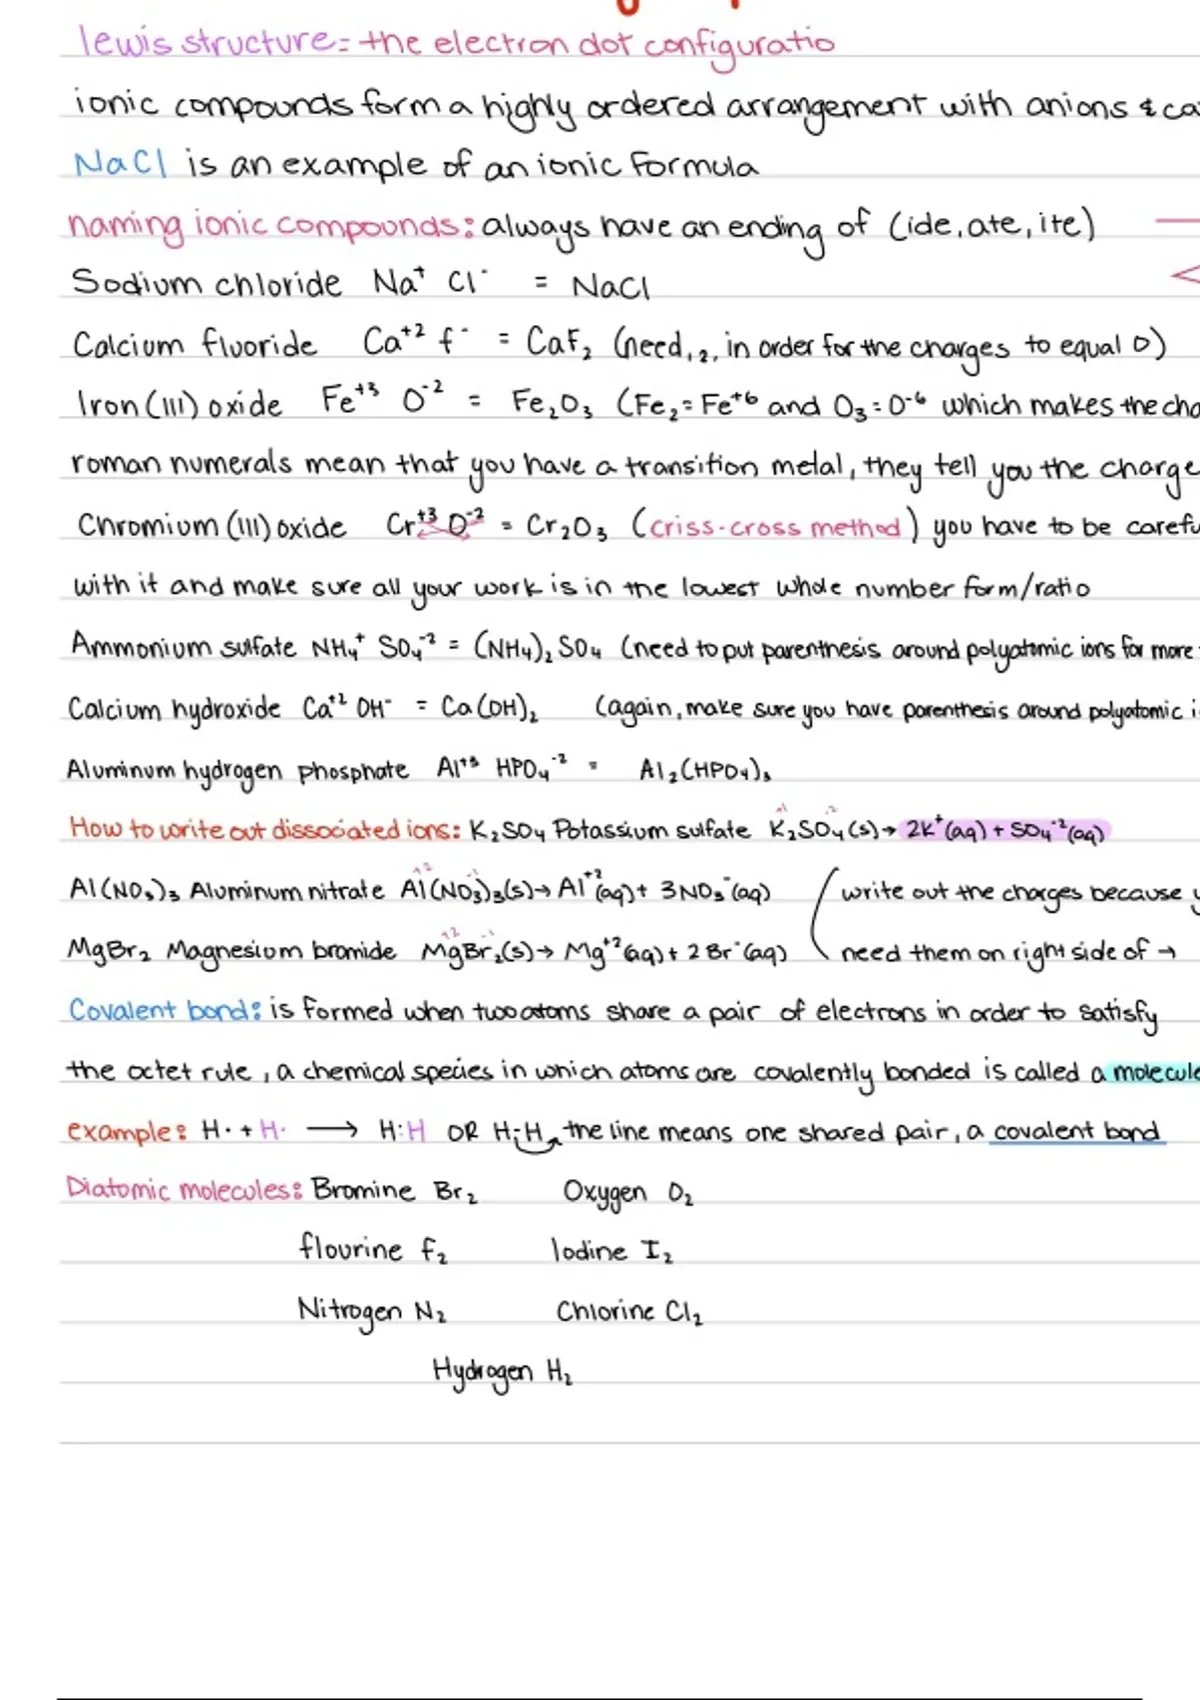 lewis structure = the electron dot configuratio
ionic compounds form a highly ordered arrangement with anions & ca
NaCl is an example of an ionic formula
naming ionic compounds: always have an ending of (ide, ate, ite)
Sodium chloride Na⁺ Cl⁻ = NaCl
Calcium fluoride Ca⁺² f⁻ = CaF₂ (need ,₂, in order for the charges to equal 0)
Iron (III) oxide Fe⁺³ O⁻² = Fe₂O₃ (Fe₂ = Fe⁺⁶ and O₃ = O⁻⁶ which makes the cha
roman numerals mean that you have a transition metal, they tell you the charge
Chromium (III) oxide Cr⁺³ O⁻² = Cr₂O₃ (criss-cross method) you have to be carefu
with it and make sure all your work is in the lowest whole number form/ratio
Ammonium sulfate NH₄⁺ SO₄⁻² = (NH₄)₂ SO₄ (need to put parenthesis around polyatomic ions for more
Calcium hydroxide Ca⁺² OH⁻ = Ca(OH)₂ (again, make sure you have parenthesis around polyatomic i
Aluminum hydrogen phosphate Al⁺³ HPO₄⁻² = Al₂(HPO₄)₃
How to write out dissociated ions: K₂SO₄ Potassium sulfate K₂SO₄(s) → 2K⁺(aq) + SO₄⁻²(aq)
Al(NO₃)₃ Aluminum nitrate Al(NO₃)₃(s) → Al⁺²(aq) + 3NO₃⁻(aq) (write out the charges because y
MgBr₂ Magnesium bromide MgBr₂(s) → Mg⁺²(aq) + 2Br⁻(aq) need them on right side of →
Covalent bond: is formed when two atoms share a pair of electrons in order to satisfy
the octet rule, a chemical species in which atoms are covalently bonded is called a molecule
example: H· + H· → H:H OR H-H the line means one shared pair, a covalent bond
Diatomic molecules: Bromine Br₂ Oxygen O₂
flourine f₂ Iodine I₂
Nitrogen N₂ Chlorine Cl₂
Hydrogen H₂